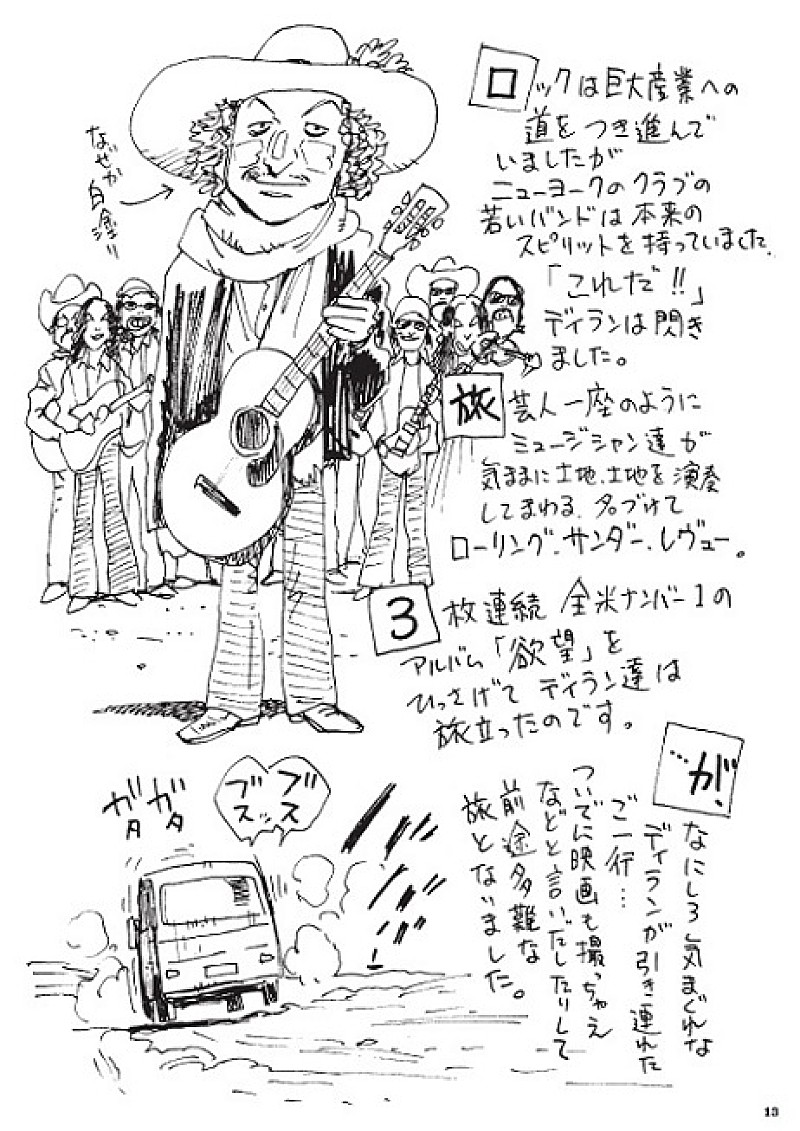 ロックは巨大産業への
道をつき進んで
いましたが
ニューヨークのクラブの
若いバンドは本来の
スピリットを持っていました。
「これだ!!」
ディランは閃き
ました。
なぜか
白塗り
旅芸人一座のように
ミュージシャン達が
気ままに土地、土地を演奏
してまわる、名づけて
ローリング・サンダー・レヴュー。
3枚連続 全米ナンバー1の
アルバム「欲望」を
ひっさげて ディラン達は
旅立ったのです。
…が、
なにしろ気まぐれな
ディランが引き連れた
ご一行…
ついでに映画も撮っちゃえ
などと言いだしたりして
前途多難な
旅となりました。
ガタ
ガタ
ブス
ブスッ
13